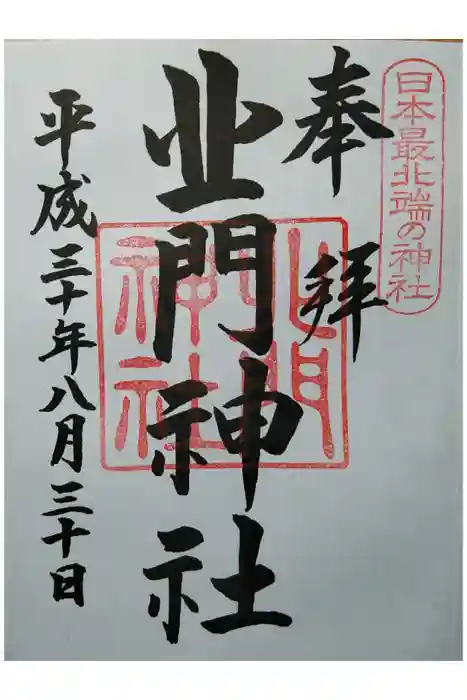 日本最北端の神社
奉拝
北門神社
北門神社
平成三十年八月三十日